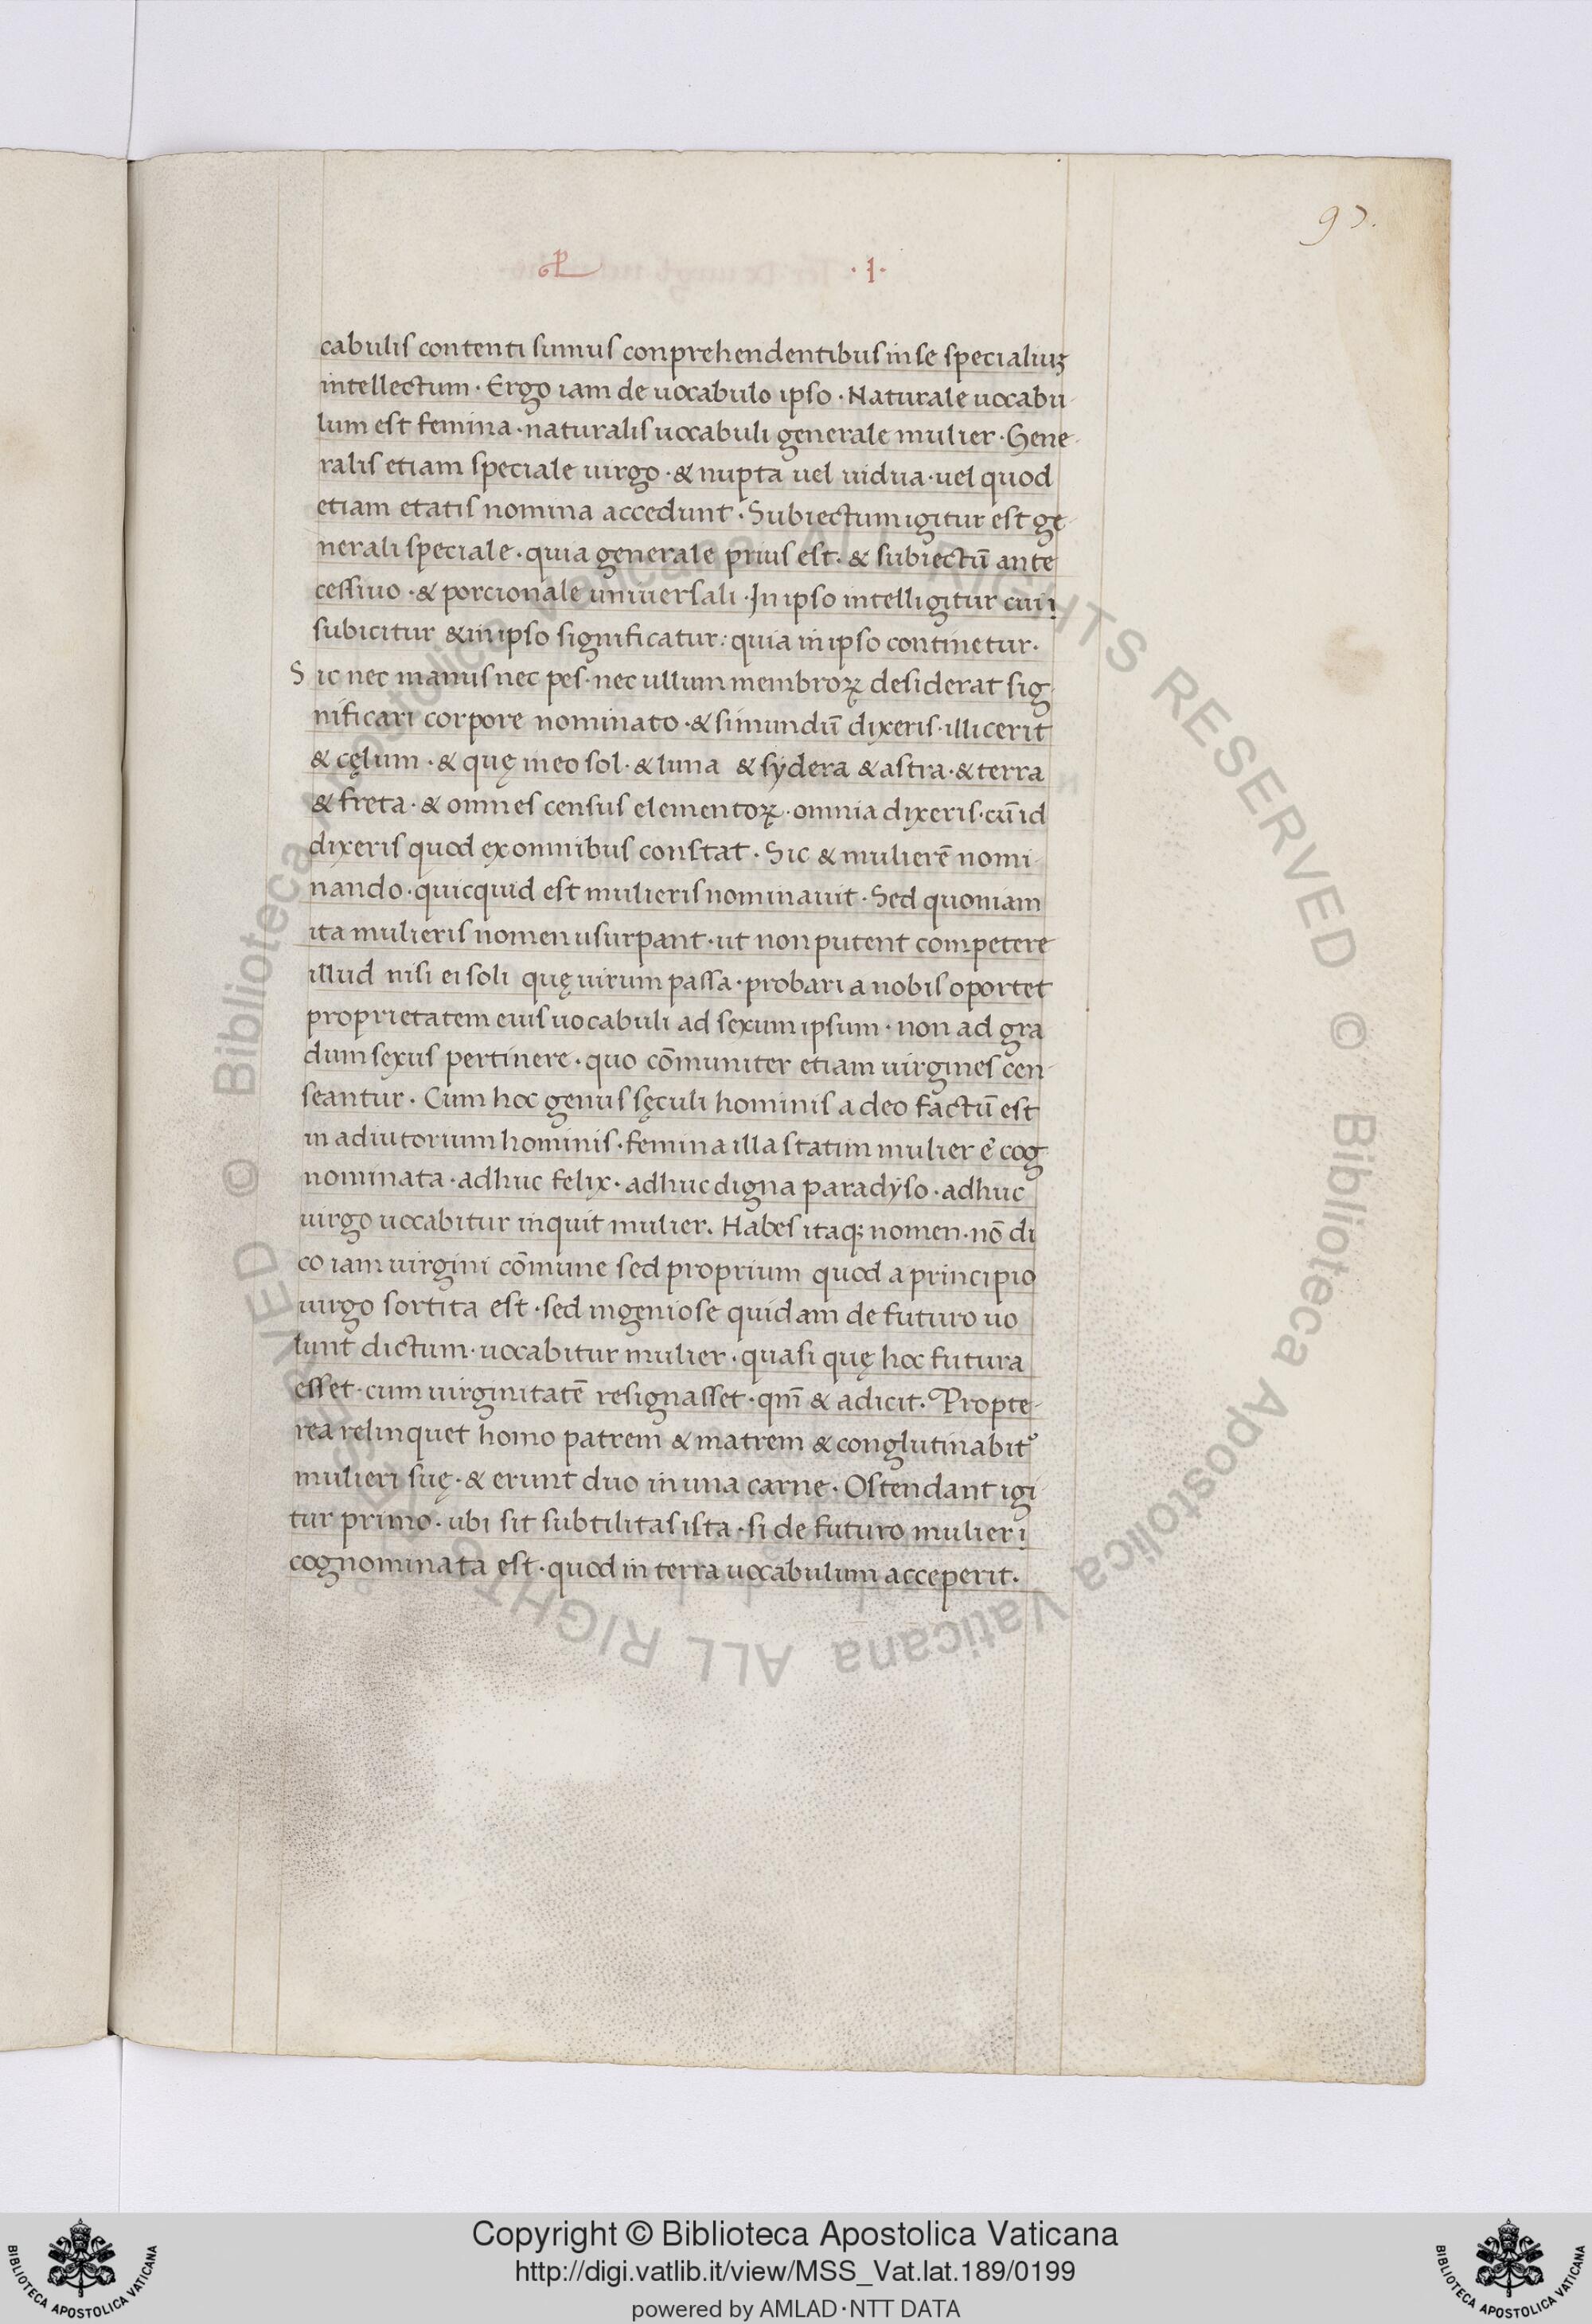 97.
·I·
cabulis contenti sumus conprehendentibus in se specialiuꝫ
intellectum · Ergo iam de uocabulo ipso · Naturale uocabu-
lum est femina · naturalis uocabuli generale mulier · Gene-
ralis etiam speciale uirgo · & nupta uel uidua · uel quod
etiam etatis nomina accedunt · Subiectum igitur est ge-
nerali speciale · quia generale prius est · & subiectū ante
cessiuo · & porcionale uniuersali · In ipso intelligitur cui
subicitur & in ipso significatur: quia in ipso continetur.
Sic nec manus nec pes · nec ullum membroꝝ desiderat sig-
nificari corpore nominato · & si mundū dixeris · illic erit
& cęlum · & quę in eo sol · & luna & sydera & astra · & terra
& freta · & omnes census elementoꝝ · omnia dixeris · cū id
dixeris quod ex omnibus constat · Sic & mulierē nomi-
nando · quicquid est mulieris nominauit · Sed quoniam
ita mulieris nomen usurpant · ut non putent competere
illud nisi ei soli quę uirum passa · probari a nobis oportet
proprietatem eius uocabuli ad sexum ipsum · non ad gra
dum sexus pertinere · quo cōmuniter etiam uirgines cen-
seantur · Cum hoc genus sęculi hominis a deo factū est
in adiutorium hominis · femina illa statim mulier ē cog-
nominata · adhuc felix · adhuc digna paradyso · adhuc
uirgo uocabitur inquit mulier. Habes itaq; nomen · nō di
co iam uirgini cōmune sed proprium quod a principio
uirgo sortita est · sed ingeniose quidam de futuro uo
lunt dictum · uocabitur mulier · quasi quę hoc futura
esset · cum uirginitatē resignasset · qm̄ & adicit · Propte-
rea relinquet homo patrem & matrem & conglutinabit᷒
mulieri suę · & erunt duo in una carne · Ostendant igi
tur primo · ubi sit subtilitas ista · si de futuro mulier
cognominata est · quod in terra uocabulum acceperit.
Biblioteca Apostolica Vaticana ALL RIGHTS RESERVED ©
Biblioteca Apostolica Vaticana ALL RIGHTS RESERVED ©
Copyright © Biblioteca Apostolica Vaticana
http://digi.vatlib.it/view/MSS_Vat.lat.189/0199
powered by AMLAD·NTT DATA
BIBLIOTECA APOSTOLICA VATICANA
BIBLIOTECA APOSTOLICA VATICANA